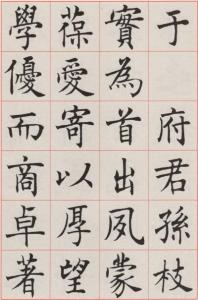 于 府君孫枝
實為首出夙蒙
葆愛寄以厚望
學優而商卓著